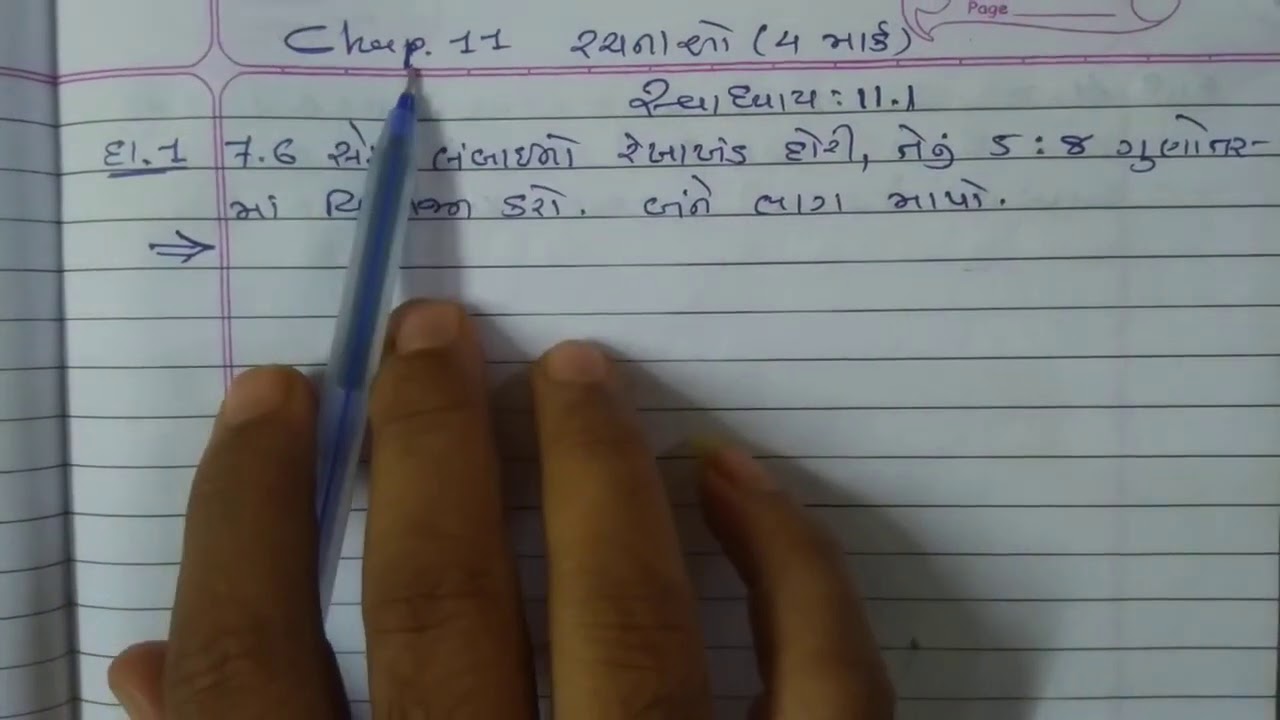 Page
Chap. 11 રચનાઓ (4 માર્ક)
સ્વાધ્યાય : 11.1
દા.1 7.6 સેમી લંબાઇનો રેખાખંડ દોરી, તેનું 5:8 ગુણોત્તર-
માં કરો. બંને ભાગ માપો.
⇒